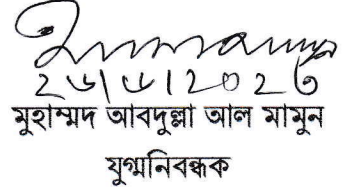 ২৬|৬|২০২৩
মুহাম্মদ আবদুল্লা আল মামুন
যুগ্মনিবন্ধক